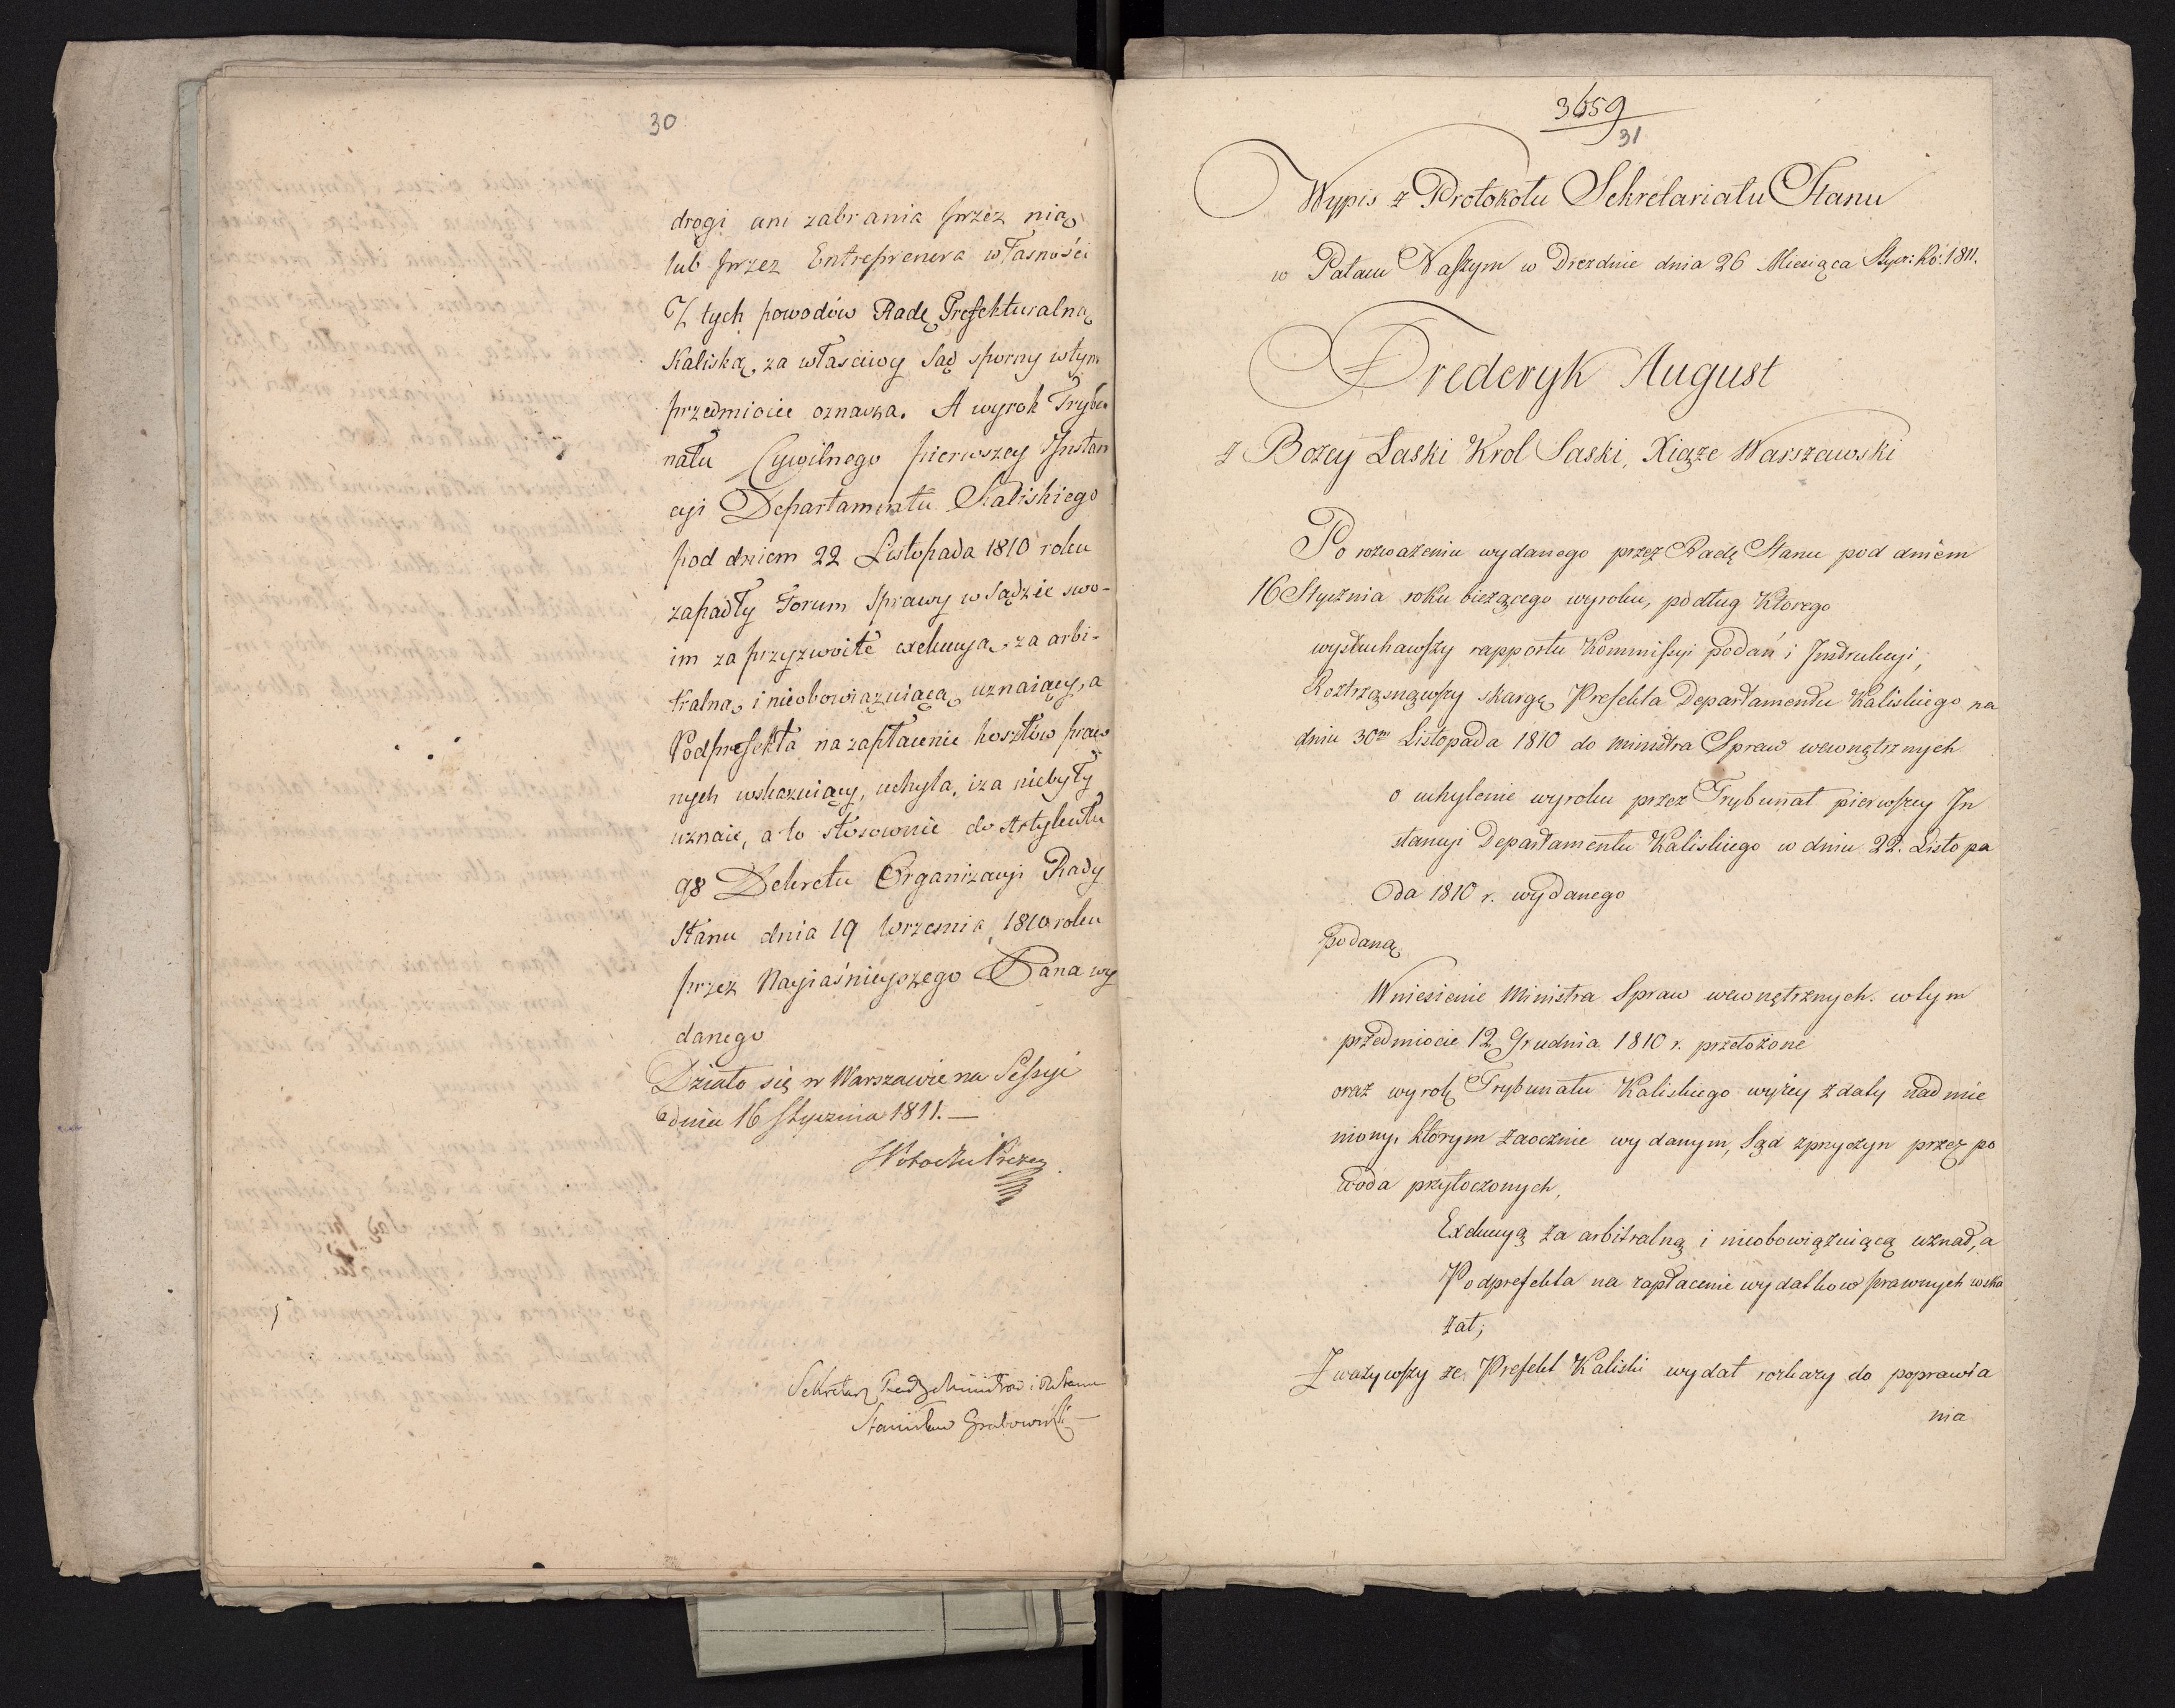 30
drogi ani zabrania przez nią
lub przez Entreprenera własności
Z tych powodów Radę Prefekturalną
Kaliską, za własciwy Sąd sporny wtym
przedmiocie oznacza. A wyrok Trybu
nału Cywilnego pierwszey Instan
cyi Departamentu Kaliskiego
pod dniem 22 Listopada 1810 roku
zapadły Forum Sprawy w Sądzie swo-
im za przyzwoite excluzyą, za arbi-
tralną i nieobowiązuiącą uznaiący, a
Podprefekta na zapłacenie kosztów praw
nych wskazuiący, uchyla, iza niebyły
uznaie, a to stosownie do Artykułu
98 Dekretu Organizacyi Rady
Stanu dnia 19 Wrzesnia 1810 roku
przez Nayiaśnieyszego Pana wy
danego
Działo się w Warszawie na Sessyi
dnia 16 Stycznia 1811. —
Sekretarz Rady Ministrów i Stanu
Stanisław Grabowski
3659
31
Wypis z Protokołu Sekretariatu Stanu
w Pałacu Naszym w Dreznie dnia 26 Miesiąca Stycz: Ro: 1811.
Frederyk August
z Bozey Laski Krol Saski, Xiąze Warszawski
Po rozwazeniu wydanego przez Radę Stanu pod dniem
16 Stycznia roku biezącego wyroku, podług ktorego
wysłuchawszy rapportu Kommissyi podań i Instrukcyi,
Roztrząsnąwszy skargę Prefekta Departamentu Kaliskiego na
dniu 30m Listopada 1810 do ministra Spraw wewnętrznych
o uchylenie wyroku przez Trybunał pierwszey In
stancyi Departamentu Kaliskiego w dniu 22. Listopa
da 1810 r. wydanego
podaną
Wniesienie Ministra Spraw wewnętrznych. wtym
przedmiocie 12 Grudnia 1810 r. przełożone
oraz wyrok Trybunału Kaliskiego wyżey z daty nadmie
niony, którym zaocznie wydanym, Sąd zprzyczyn przez po
woda przytoczonych,
Exekucyą za arbitralną i nieobowiązuiącą uznał, a
Podprefekta na zapłacenie wydatkow prawnych wska
zał;
Zważywszy ze Prefekt Kaliski wydał rozkazy do poprawia
nia